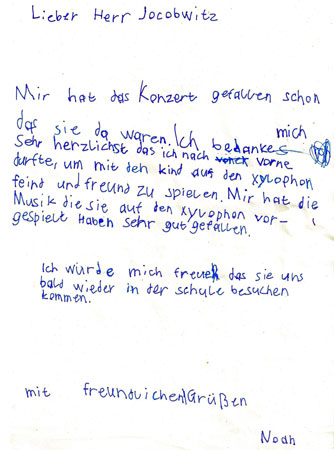 Lieber Herr Jocobwitz
Mir hat das Konzert gefallen schon
das sie da waren. Ich bedanke mich
Sehr herzlichst das ich nach vorne
durfte, um mit den kind auf den xylophon
feind und freund zu spielen. Mir hat die
Musik die sie auf den xylophon vor-
gespielt haben sehr gut gefallen.
Ich würde mich freuen das sie uns
bald wieder in der schule besuchen
kommen.
mit freundlichen Grüßen
Noah